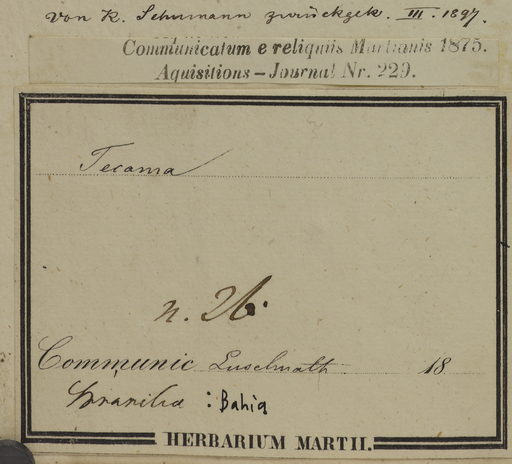 von K. Schumann zurückgek. III. 1897.
Communicatum e reliquiis Martianis 1875.
Aquisitions – Journal Nr. 229.
Tecoma
n. 26.
Communic Luschnath 18
Brasilia : Bahia
HERBARIUM MARTII.